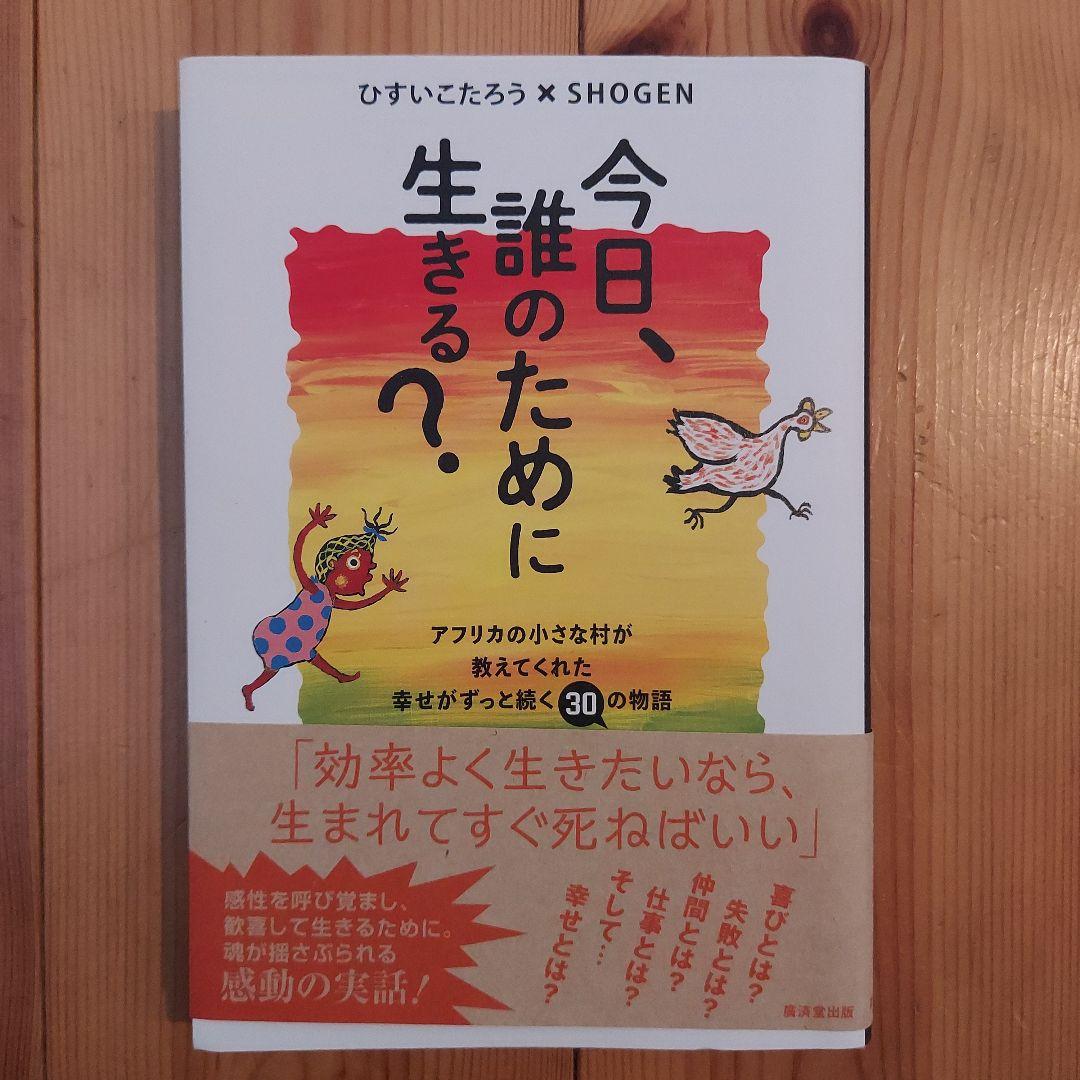 ひすいこたろう×SHOGEN
今日、
誰のために
生きる?
アフリカの小さな村が
教えてくれた
幸せがずっと続く30の物語
「効率よく生きたいなら、
生まれてすぐ死ねばいい」
喜びとは?
失敗とは?
仲間とは?
仕事とは?
そして…
幸せとは?
感性を呼び覚まし、
歓喜して生きるために。
魂が揺さぶられる
感動の実話!
廣済堂出版